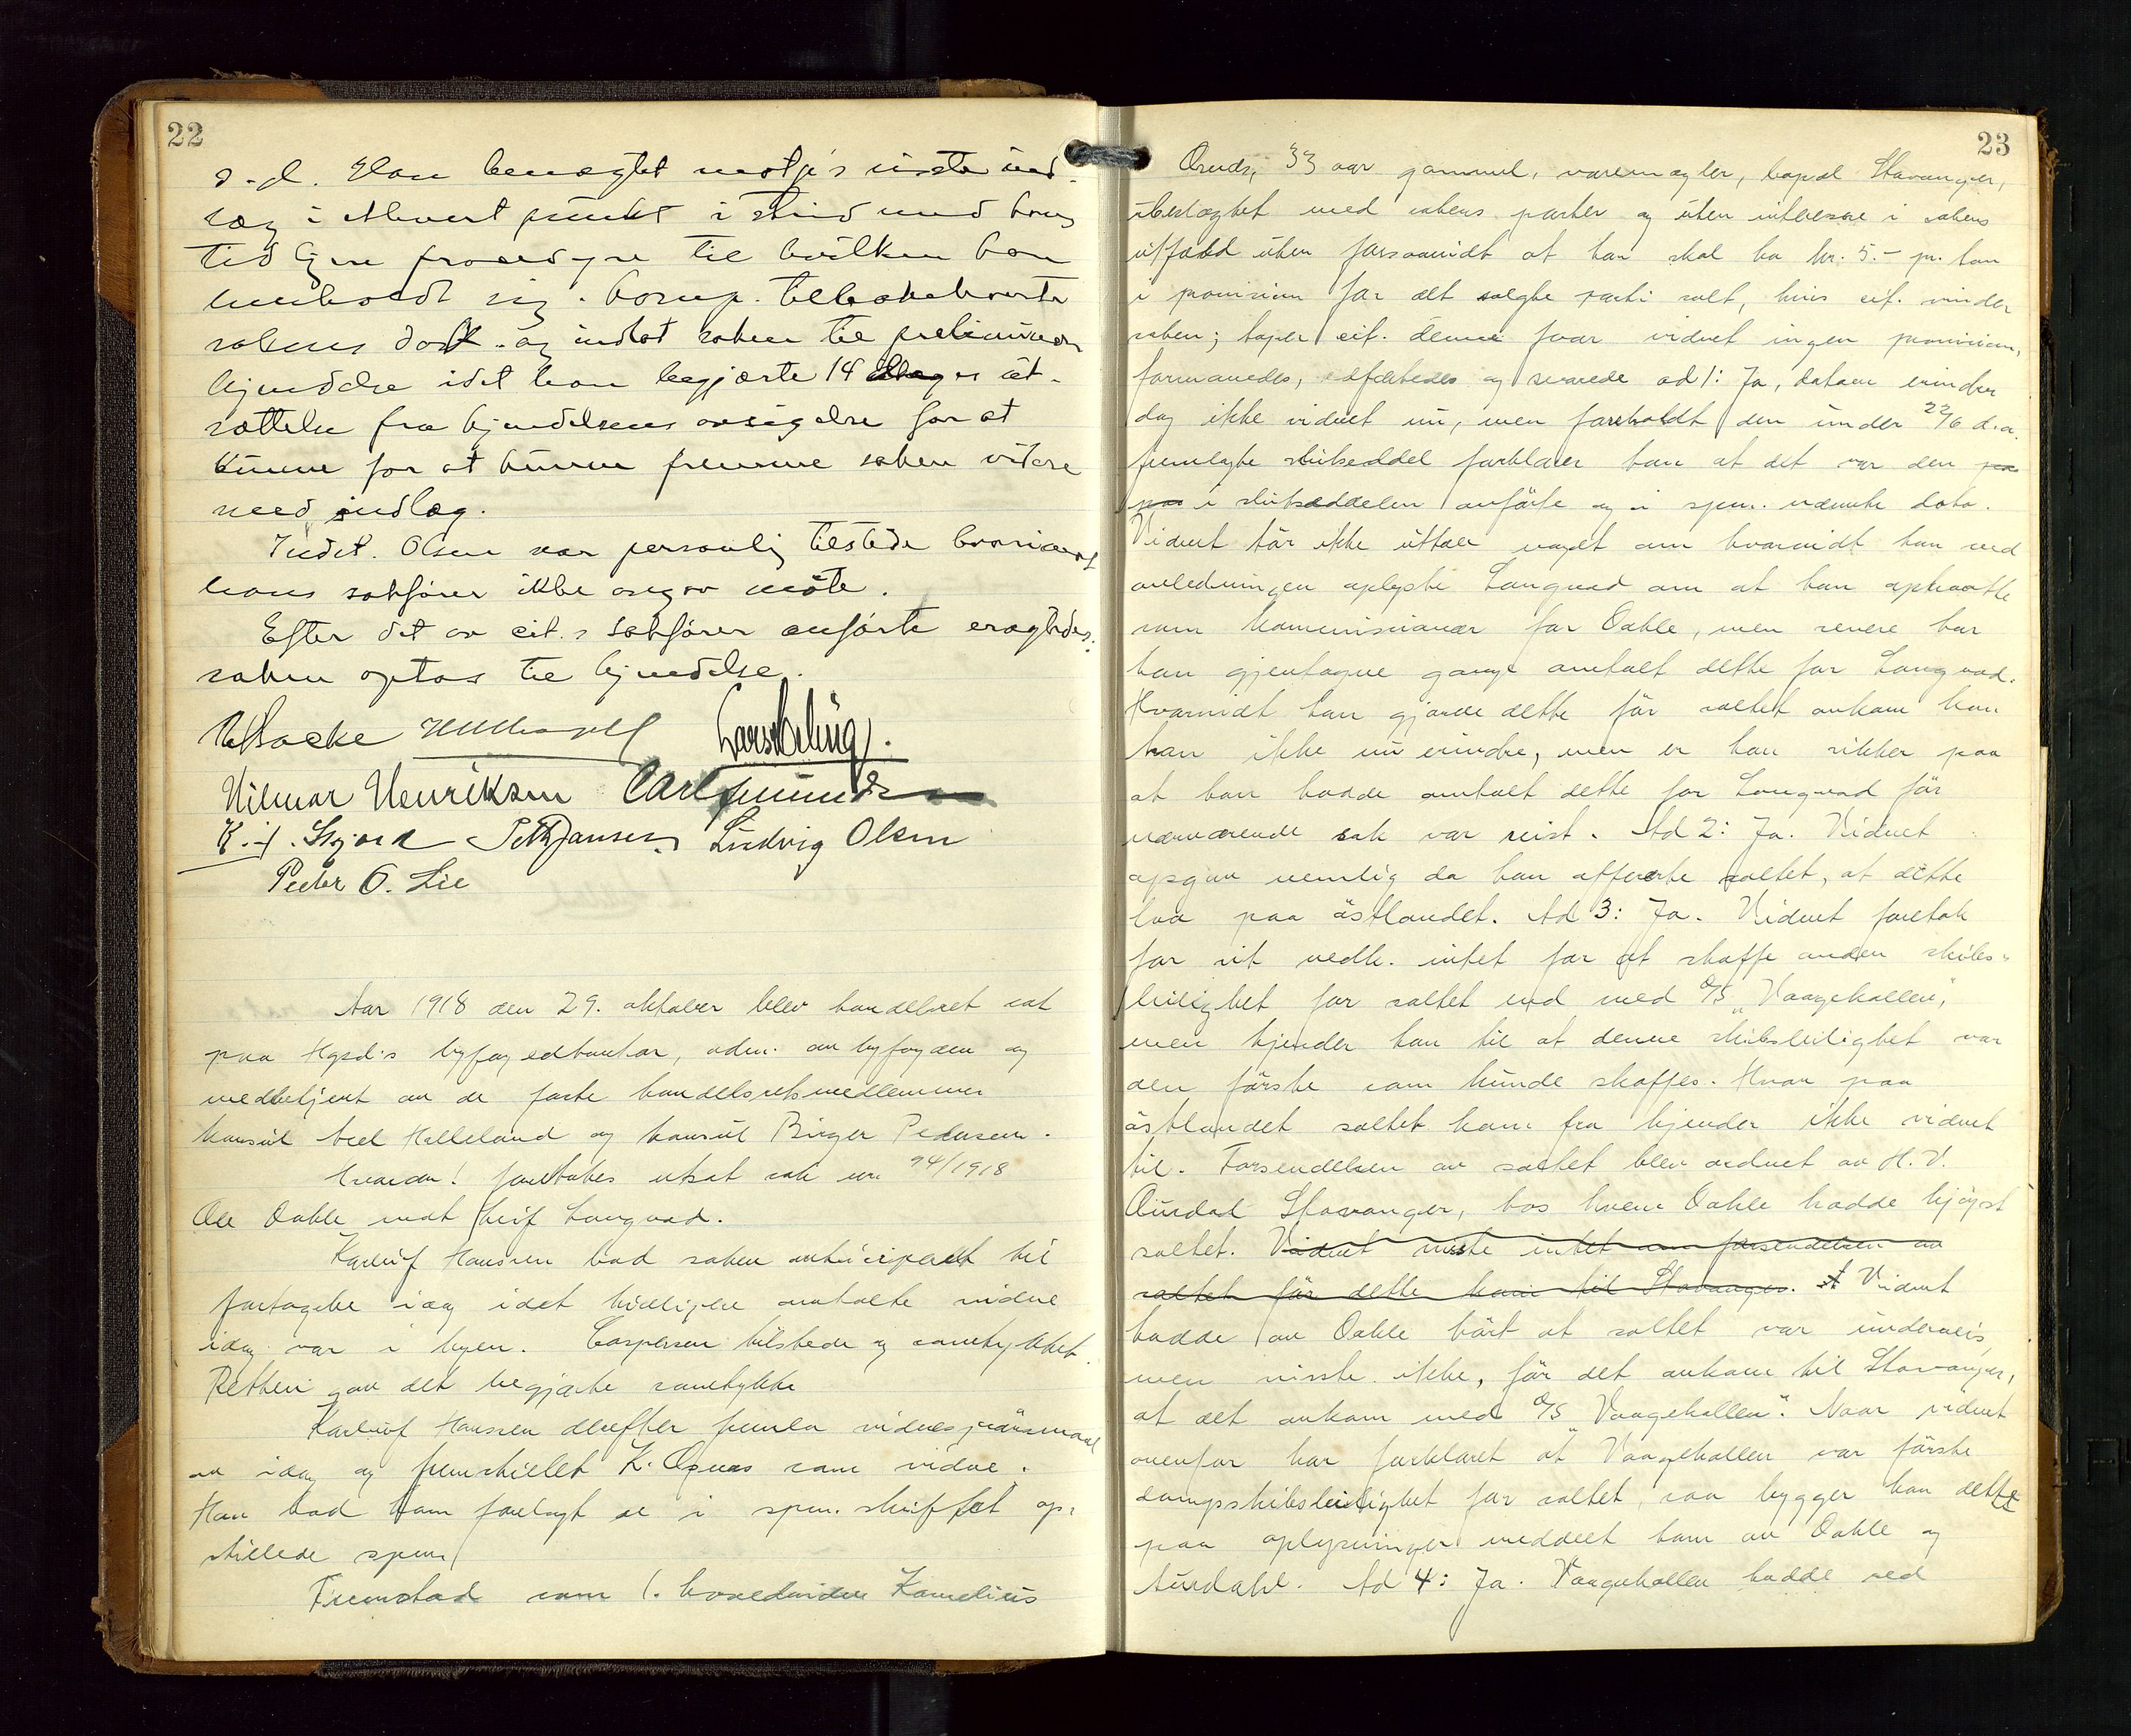 22
s.d. Han benegtet motp's siste ind-
læg i ethvert punkt i strid med hans
tidligere procedyre til hvilken han
henholdt sig. Komp. tilbakeleverte
sakens dok. og indlot saken til preliminær
kjendelse idet han begjærte 14 dages ut-
sættelse fra kjendelsens avsigelse for at
kunne for at kunne fremme saken videre
med indlæg.
Indst. Olsen var personlig tilstede hvorimot
hans sakfører ikke avgav møte.
Efter det av cit.s sakfører anførte eragtedes:
saken optas til kjendelse.
Hilmar Henriksen Carl
Ludvig Olsen
Peder O. Lie
Aar 1918 den 29. oktober blev handelsret sat
paa Hgsd.s byfogedkontor, adm. av byfogden og
medbetjent av de faste handelsretsmedlemmer
konsul Helleland og konsul Birger Pedersen.
Hvorda! foretokes utsat sak nr 94/1918
Ole Oahle mot Leif Langvad.
Karluf Hanssen bad saken anticiperet til
foretagelse idag idet tidligere omtalte vidne
idag var i byen. Caspersen tilstede og samtykket.
Retten gav det begjærte samtykke
Karluf Hanssen derefter fremla vidnespørsmaal
av idag og fremstillet K. Osnes som vidne.
Han bad ham forelagt de i spm. skriftet op-
stillede spm.
Fremstod som 1. hovedvidne Kornelius
23
Osnes, 33 aar gammel, varemægler, bopæl Stavanger,
ubeslægtet med sakens parter og uten interesse i sakens
utfald uten forsaavidt at han skal ha kr. 5.- pr. ton
i provision for det solgte parti salt, hvis cit. vinder
saken; taper cit. denne faar vidnet ingen provision,
formanedes, edfæstedes og svarede ad 1: Ja, datoen erindrer
dog ikke vidnet nu, men foreholdt den under 22/6 d.a.
fremlagte slutseddel forklarer han at det var den paa
paa i slutseddelen anførte og i spm. nævnte dato.
Vidnet tør ikke uttale noget om hvorvidt han ved
anledningen oplyste Langvad om at han optraatte
som kommissionær for Oahle, men senere har
han gjentagne gange omtalt dette for Langvad.
Hvorvidt han gjorde dette før saltet ankom kan
han ikke nu erindre, men er han sikker paa
at han hadde omtalt dette for Langvad før
nærværende sak var reist. Ad 2: Ja. Vidnet
opgav nemlig da han offererte saltet, at dette
laa paa østlandet. Ad 3: Ja. Vidnet foretok
for sit vedk. intet for at skaffe anden skibs-
leilighet for saltet end med D/S "Vaagekallen",
men kjender han til at denne skibsleilighet var
den første som kunde skaffes. Hvor paa
østlandet saltet kom fra kjender ikke vidnet
til. Forsendelsen av saltet blev ordnet av H. V.
Aurdal Stavanger, hos hvem Oahle hadde kjøpt
saltet. Vidnet visste intet om forsendelsen av
saltet før dette kom til Stavanger. Vidnet
hadde av Oahle hørt at saltet var underveis,
men visste ikke, før det ankom til Stavanger,
at det ankom med D/S "Vaagekallen". Naar vidnet
ovenfor har forklaret at Vaagekallen var første
dampskibsleilighet for saltet, saa bygger han dette
paa oplysninger meddelt ham av Oahle og
Aurdahl. Ad 4: Ja. Vaagekallen hadde ved